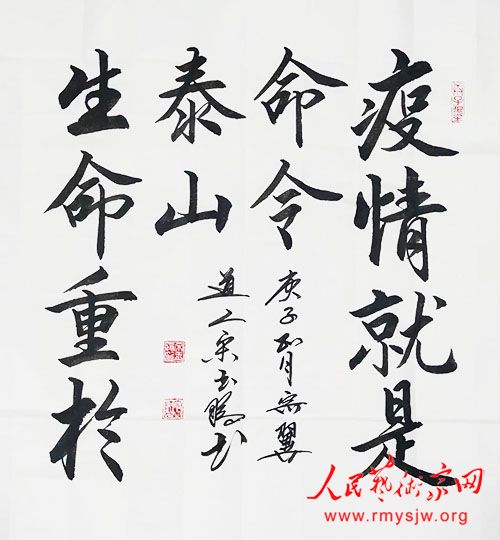 疫情就是
命令
生命重於
泰山
庚子正月
道人宋玉
人民藝術家网
www.rmysjw.org